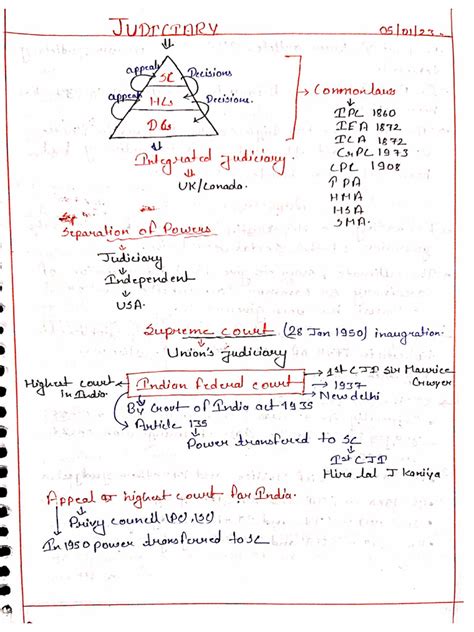 JUDICIARY
05/01/23
appeals SC Decisions
appeals HCs Decisions.
DCs
Integrated judiciary.
UK/Canada.
Common laws
IPC 1860
IEA 1872
ICA 1872
CrPC 1973
CPC 1908
TPA
HMA
HSA
SMA.
Separation of Powers
Judiciary
Independent
USA.
Supreme court (28 Jan 1950) inauguration.
Union's judiciary
Highest court in India
Indian Federal court
1st CJI Sir Maurice Gwyer
1937
New delhi
By Govt of India act 1935
Article 135
Power transferred to SC
1st CJI
Hira lal J Kaniya
Appeal or highest court for India.
Privy council
In 1950 power transferred to SC